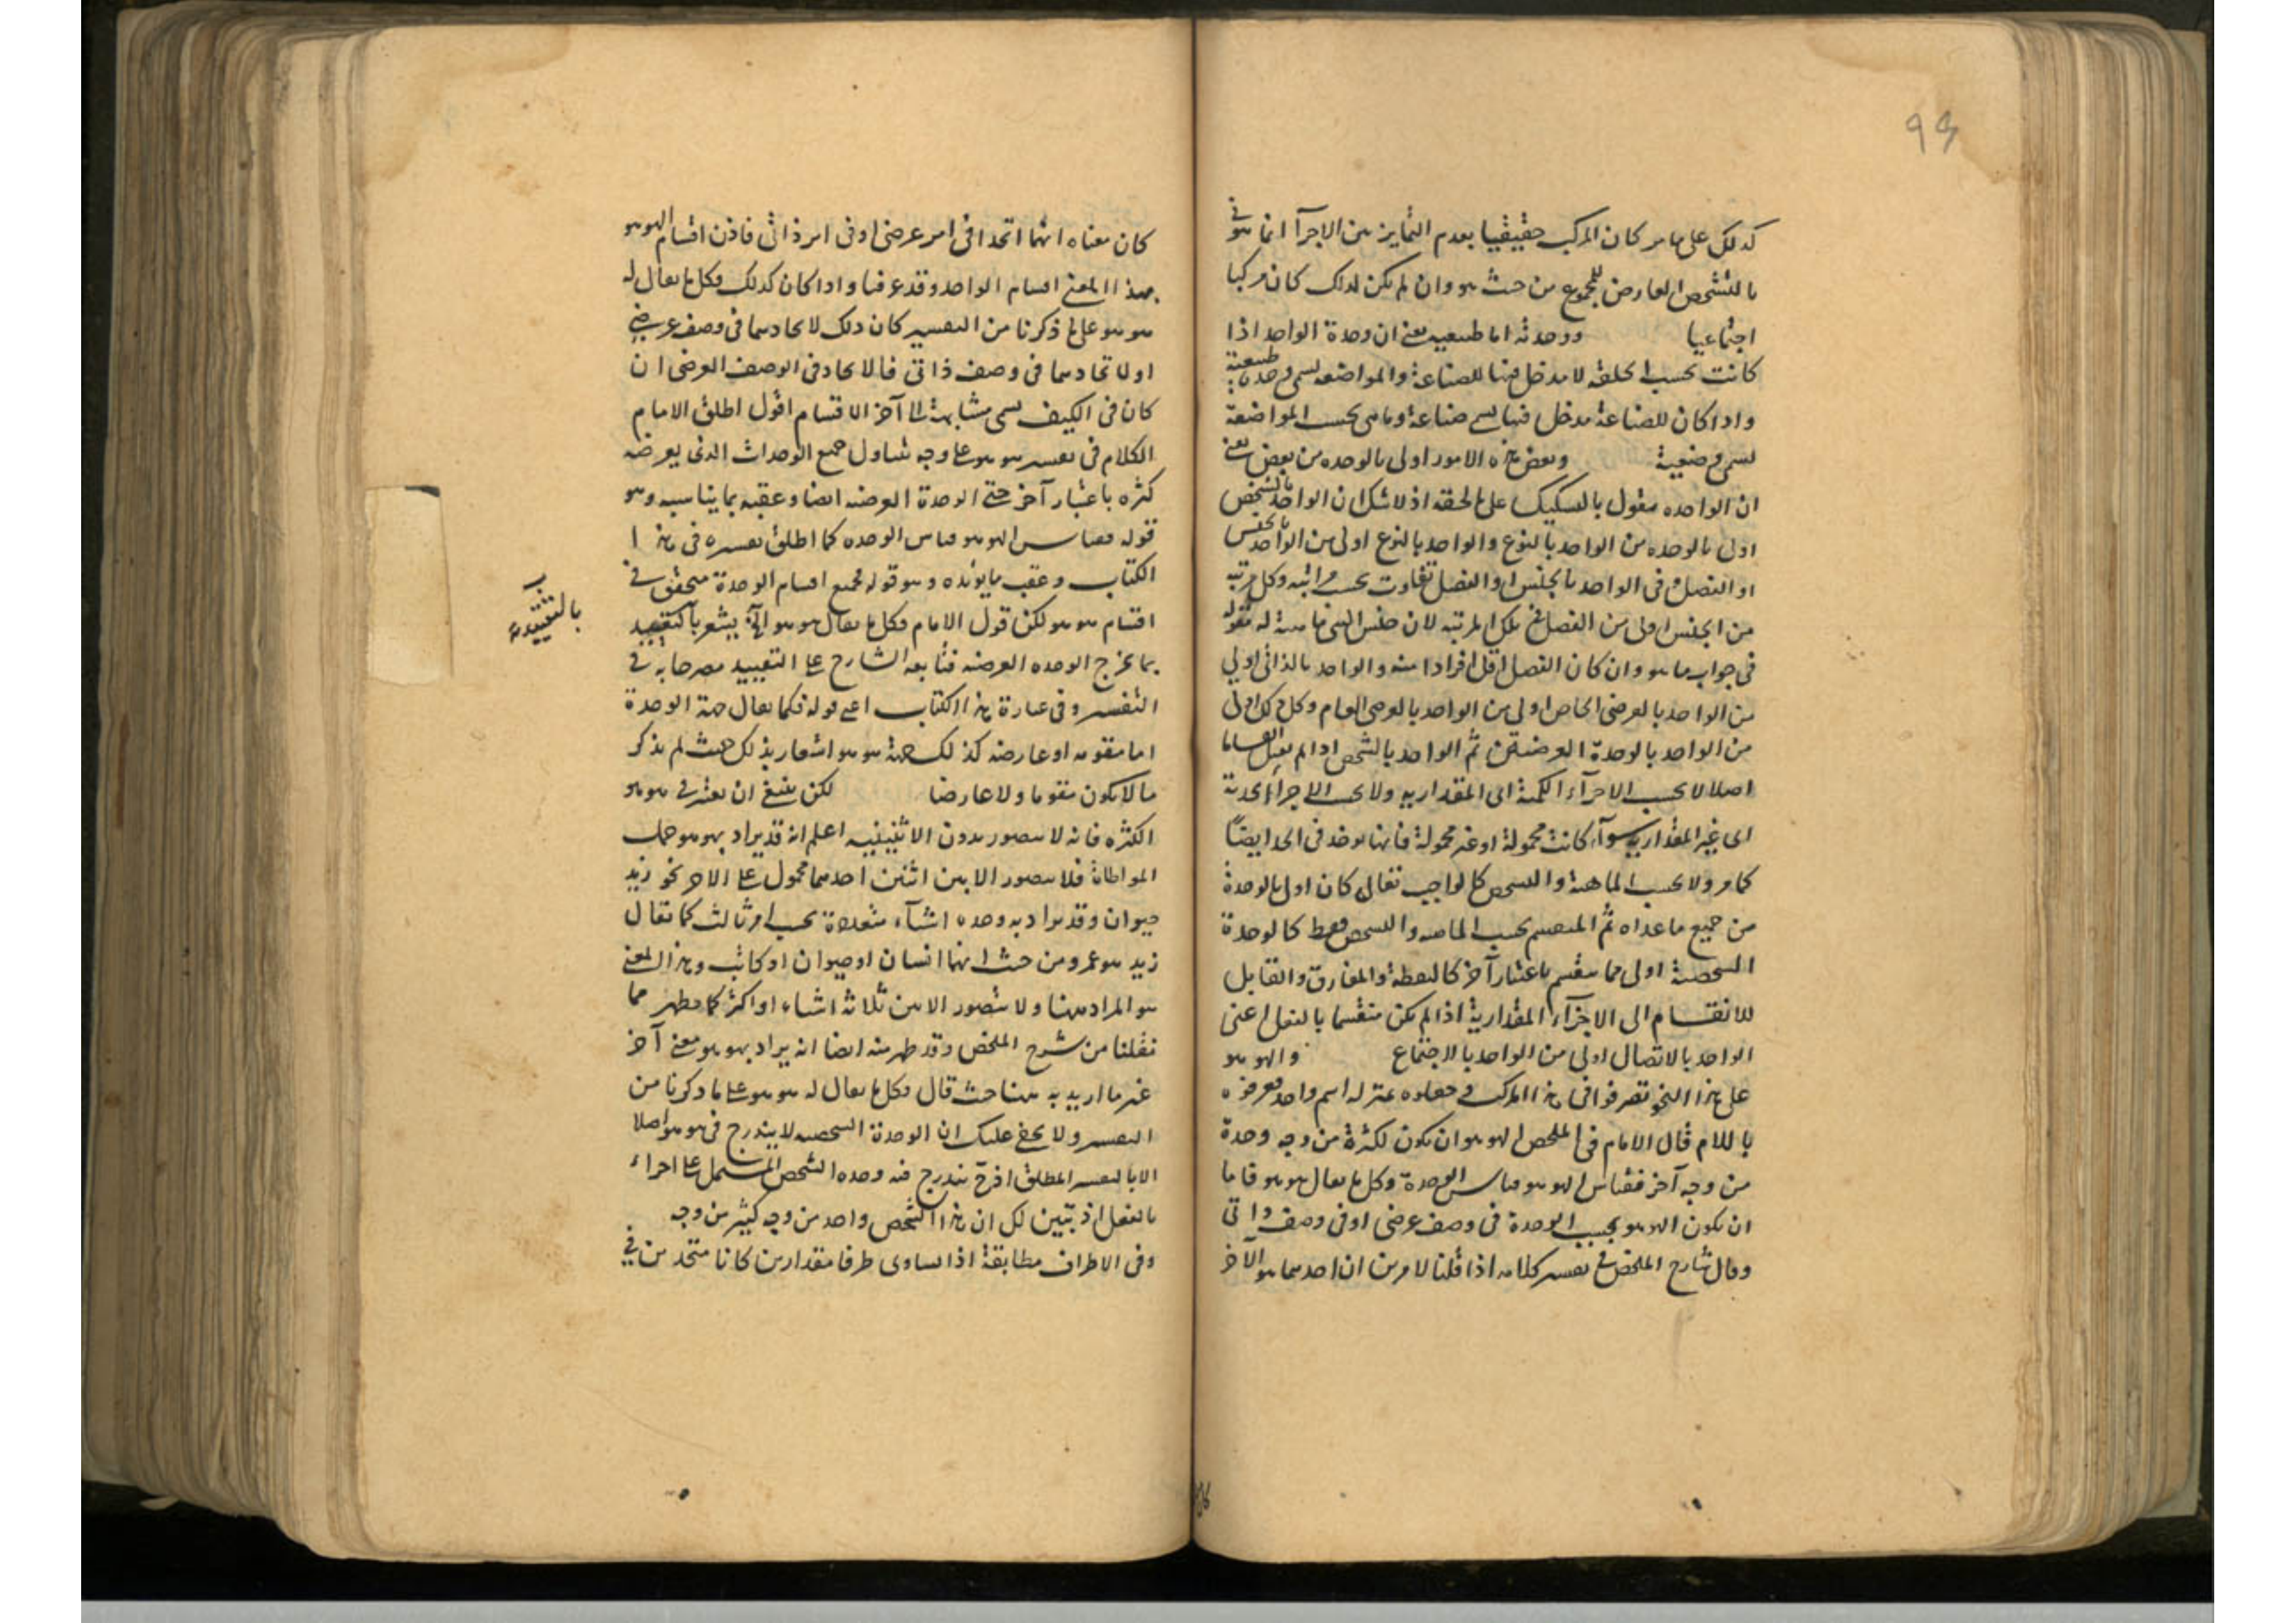 ٩٩
كذلك على ما مر كان المركب حقيقيا بعدم التمايز بين الاجزآ انما هو في
بالتشخص العارض للمجموع من حيث هو وان لم يكن كذلك كان مركبا
اجتماعيا ووحدته اما طبيعية يعني ان وحدة الواحد اذا
كانت بحسب الخلقة لا مدخل فيها للصناعة والمواضعة تسمى وحدة طبيعية
واذا كان للصناعة مدخل فيها تسمى صناعة وما هى بحسب المواضعة
تسمى وضعية وبعض هذه الامور اولى بالوحده من بعض يعني
ان الواحده مقول بالتشكيك على ما تحته اذ لا شك ان الواحد بالشخص
اولى بالوحده من الواحد بالنوع والواحد بالنوع اولى من الواحد بالجنس
او الفصل فى الواحد بالجنس او الفصل تفاوت بحسب مراتبه وكل مرتبه
من الجنس اولى من الفصل في تلك المرتبه لان جنس الشي ماهية له مقوله
فى جواب ما هو وان كان الفصل اقل افرادا منه والواحد بالذاتى اولى
من الواحد بالعرضى الخاص اولى من الواحد بالعرضى العام وكل ذلك اولى
من الواحد بالوحدة العرضية ثم الواحد بالشخص اذا لم يقبل انقساما
اصلا لا بحسب الاجزآء الكمية اى المقداريه ولا بحسب الاجزآء الحدية
اى غير المقداريه سوآء كانت محمولة او غير محمولة فانها توخذ فى الحد ايضاً
كما مر ولا بحسب الماهية والتشخص كالواجب تعالى كان اولى بالوحدة
من جميع ما عداه ثم المنقسم بحسب الماهيه والتشخص فقط كالوحدة
الشخصية اولى مما ينقسم باعتبار آخر كالنقطة والمفارق والقابل
للانقسام الى الاجزآء المقدارية اذا لم يكن منقسما بالفعل اعنى
الواحد بالاتصال اولى من الواحد بالاجتماع والهو هو
على هذا النحو تصرفوا فى هذا المركب وجعلوه بمنزلة اسم واحد فعرفوه
باللام قال الامام فى الملخص الهو هو ان يكون لكثرة من وجه وحدة
من وجه آخر فقياس الهو هو قياس الوحدة وكل ما يقال هو هو فاما
ان يكون الهو هو بحسب الوحدة فى وصف عرضى او فى وصف ذاتى
وقال شارح الملخص في تفسير كلامه اذا قلنا لامرين ان احدهما هو الآخر
كان معناه انهما اتحدا فى امر عرضى او فى امر ذاتى فاذن اقسام الهو هو
بهذا المعنى اقسام الواحد وقد عرفتها واذا كان كذلك فكل ما يقال له
هو هو على ما ذكرنا من التفسير كان ذلك لاتحادهما فى وصف عرضي
او لاتحادهما فى وصف ذاتى فالاتحاد فى الوصف العرضى ان
كان فى الكيف يسمى مشابهة الى آخر الاقسام اقول اطلق الامام
الكلام فى تفسير هو هو على وجه يتناول جميع الوحدات الذى يعرضه
كثره باعتبار آخر حتى الوحدة العرضيه ايضا وعقبه بما يناسبه وهو
قوله فقياس الهو هو قياس الوحده كما اطلق تفسيره فى هذا
الكتاب وعقب ما يويده وهو قوله فجميع اقسام الوحدة متحقق في
اقسام هو هو لكن قول الامام وكل ما يقال هو هو الخ يشعر بالتقييد
بما يخرج الوحده العرضيه فتابعه الشارح على التقييد مصرحا به في
التفسير وفى عبارة هذا الكتاب اعنى قوله فكما يقال جهة الوحدة
اما مقومه او عارضه كذلك جهة هو هو اشعار بذلك حيث لم يذكر
ما لا يكون مقوما ولا عارضا لكن ينبغي ان يعتبر في هو هو
الكثره فانه لا يتصور بدون الاثنينيه اعلم انه قد يراد بهو هو حمل
المواطاة فلا يتصور الا بين اثنين احدهما محمول على الاخر نحو زيد
حيوان وقد يراد به وحده اشيآء متعددة بحسب امر ثالث كما يقال
زيد هو عمرو من حيث انهما انسان او حيوان او كاتب وهذا المعنى
هو المراد ههنا ولا يتصور الا بين ثلاثة اشياء او اكثر كما يظهر مما
نقلنا من شرح الملخص وقد ظهر منه ايضا انه يراد بهو هو معنى آخر
غير ما اريد به ههنا حيث قال وكل ما يقال له هو هو على ما ذكرنا من
التفسير ولا يخفى عليك ان الوحدة الشخصيه لا يندرج فى هو هو اصلا
الا بالتفسير المطلق اذ ح يندرج فيه وحده الشخص المشتمل على اجزاء
بالفعل اذ تبين لك ان هذا الشخص واحد من وجه كثير من وجه
وفى الاطراف مطابقة اذا تساوى طرفا مقدارين كانا متحدين في
بالتقييد